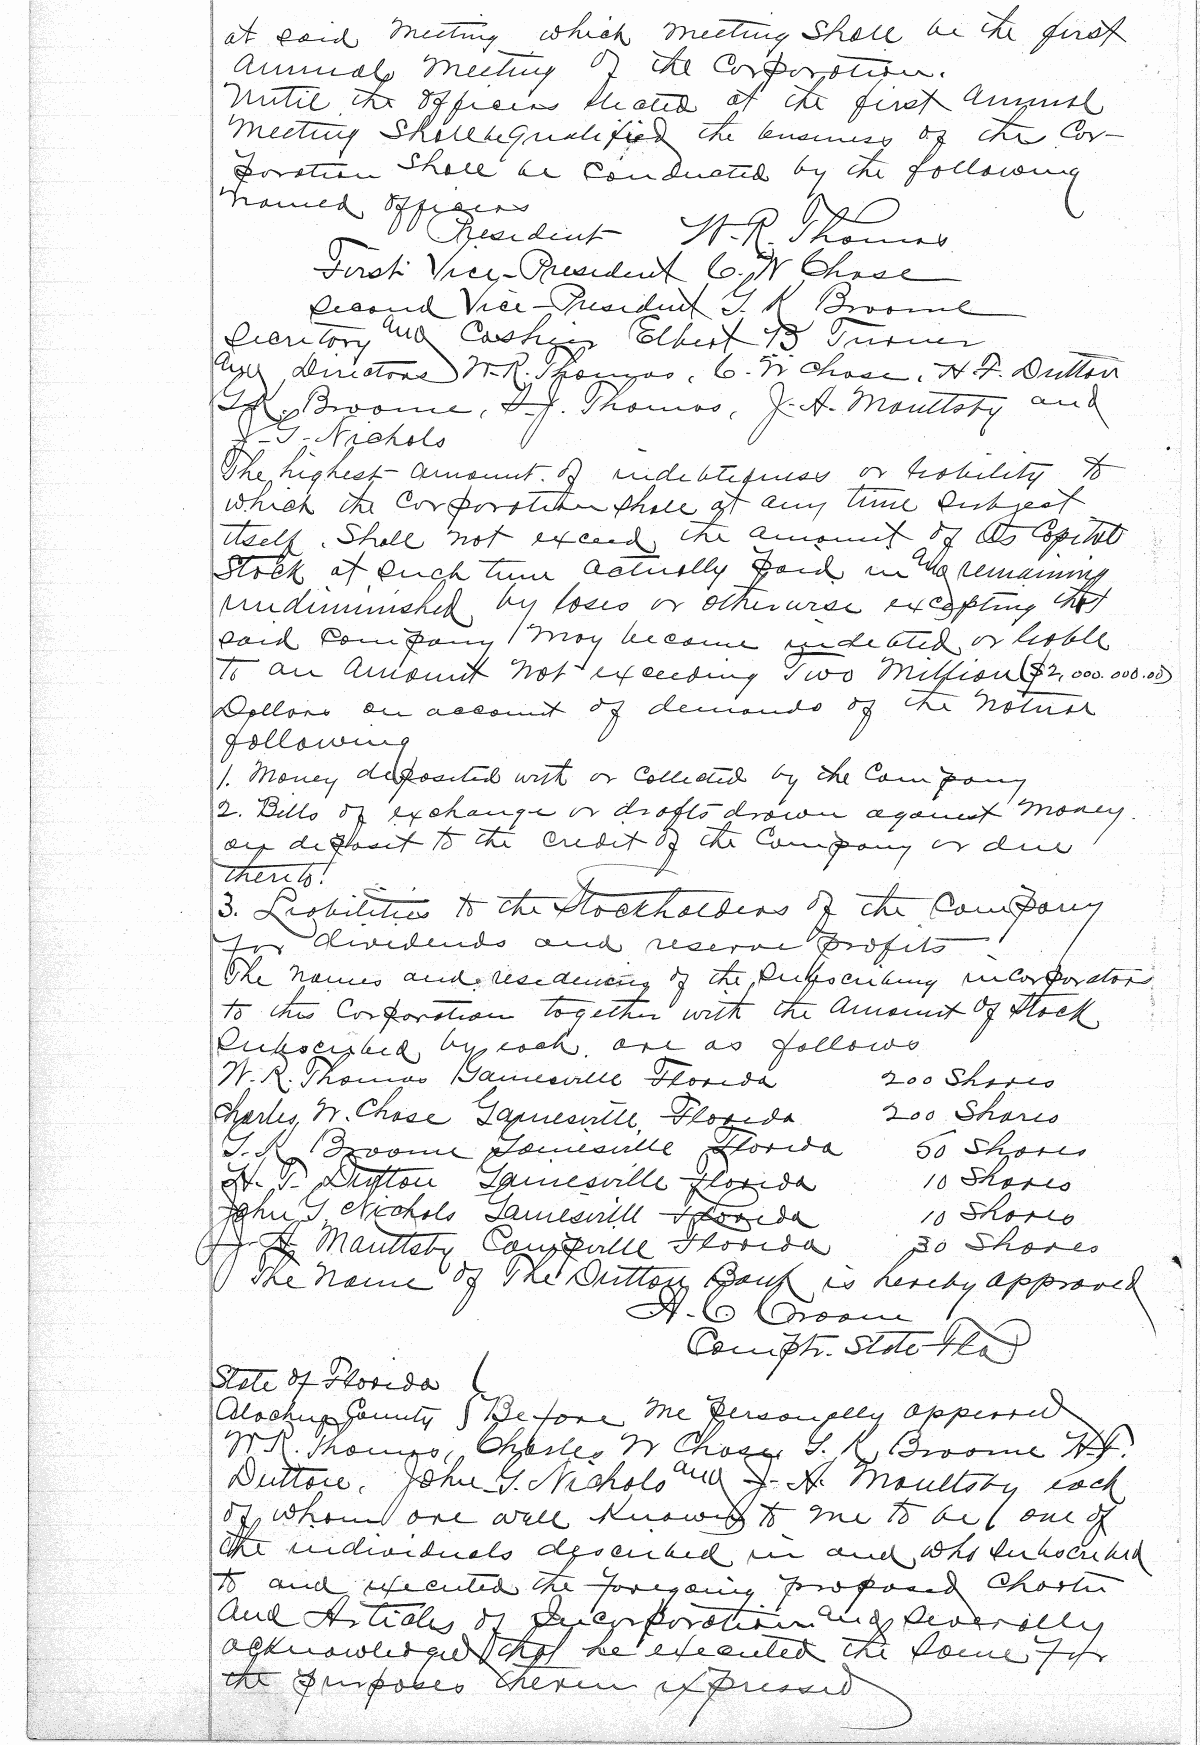 at said meeting which meeting shall be the first
annual meeting of the Corporation.
Until the officers elected at the first annual
meeting shall be qualified the business of the Cor-
poration shall be conducted by the following
named officers
President W. R. Thomas
First Vice-President C. W Chase
Second Vice-President G. K Broome
Secretory and Cashier Elbert B Turner
and Directors W. R. Thomas, C. W Chase, H. F. Dutton
G. K. Broome, S. J. Thomas, J. A. Maultsby and
J. G. Nichols
The highest amount of indebtedness or liability to
which the Corporation shall at any time subject
itself, Shall not exceed the amount of its Capital
Stock at such time actually paid in and remaining
undiminished by loses or otherwise excepting that
said Company may become indebted or liable
to an amount not exceeding Two Million ($2,000.000.00)
Dollars on account of demands of the nature
following
1. Money deposited with or collected by the Company
2. Bills of exchange or drafts drawn against money
on deposit to the credit of the Company or due
thereto.
3. Liabilities to the Stockholders of the Company
for dividends and reserve profits
The names and residences of the subscribing incorporators
to this Corporation together with the amount of stock
subscribed by each, are as follows
W. R. Thomas Gainesville Florida 200 Shares
Charles W. Chase Gainesville, Florida 200 Shares
G. K Broome Gainesville Florida 50 Shares
H. F. Dutton Gainesville Florida 10 Shares
John G. Nichols Gainesville Florida 10 Shares
J. A Maultsby Campville Florida 30 Shares
The name of The Dutton Bank is hereby approved
A. C Croom
Comptr. State Fla
State of Florida
Alachua County } Before me personally appeared
W R. Thomas, Charles W Chase, G. K, Broome H. F.
Dutton, John G. Nichols and J. A. Maultsby each
of whom are well known to me to be one of
the individuals described in and who subscribed
to and executed the foregoing proposed Charter
and Articles of Incorporation and severally
acknowledged that he executed the same for
the purposes therein expressed